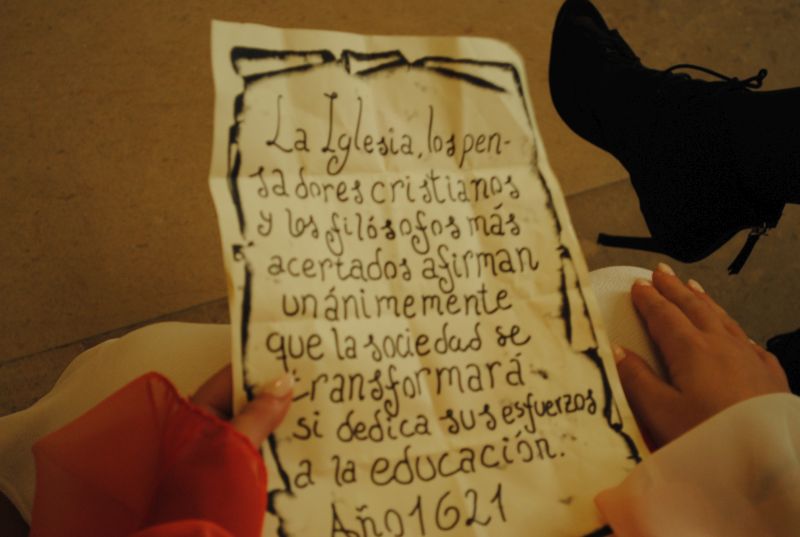 La Iglesia, los pen-
sadores cristianos
y los filósofos más
acertados afirman
unánimemente
que la sociedad se
transformará
si dedica sus esfuerzos
a la educación.
Año 1621